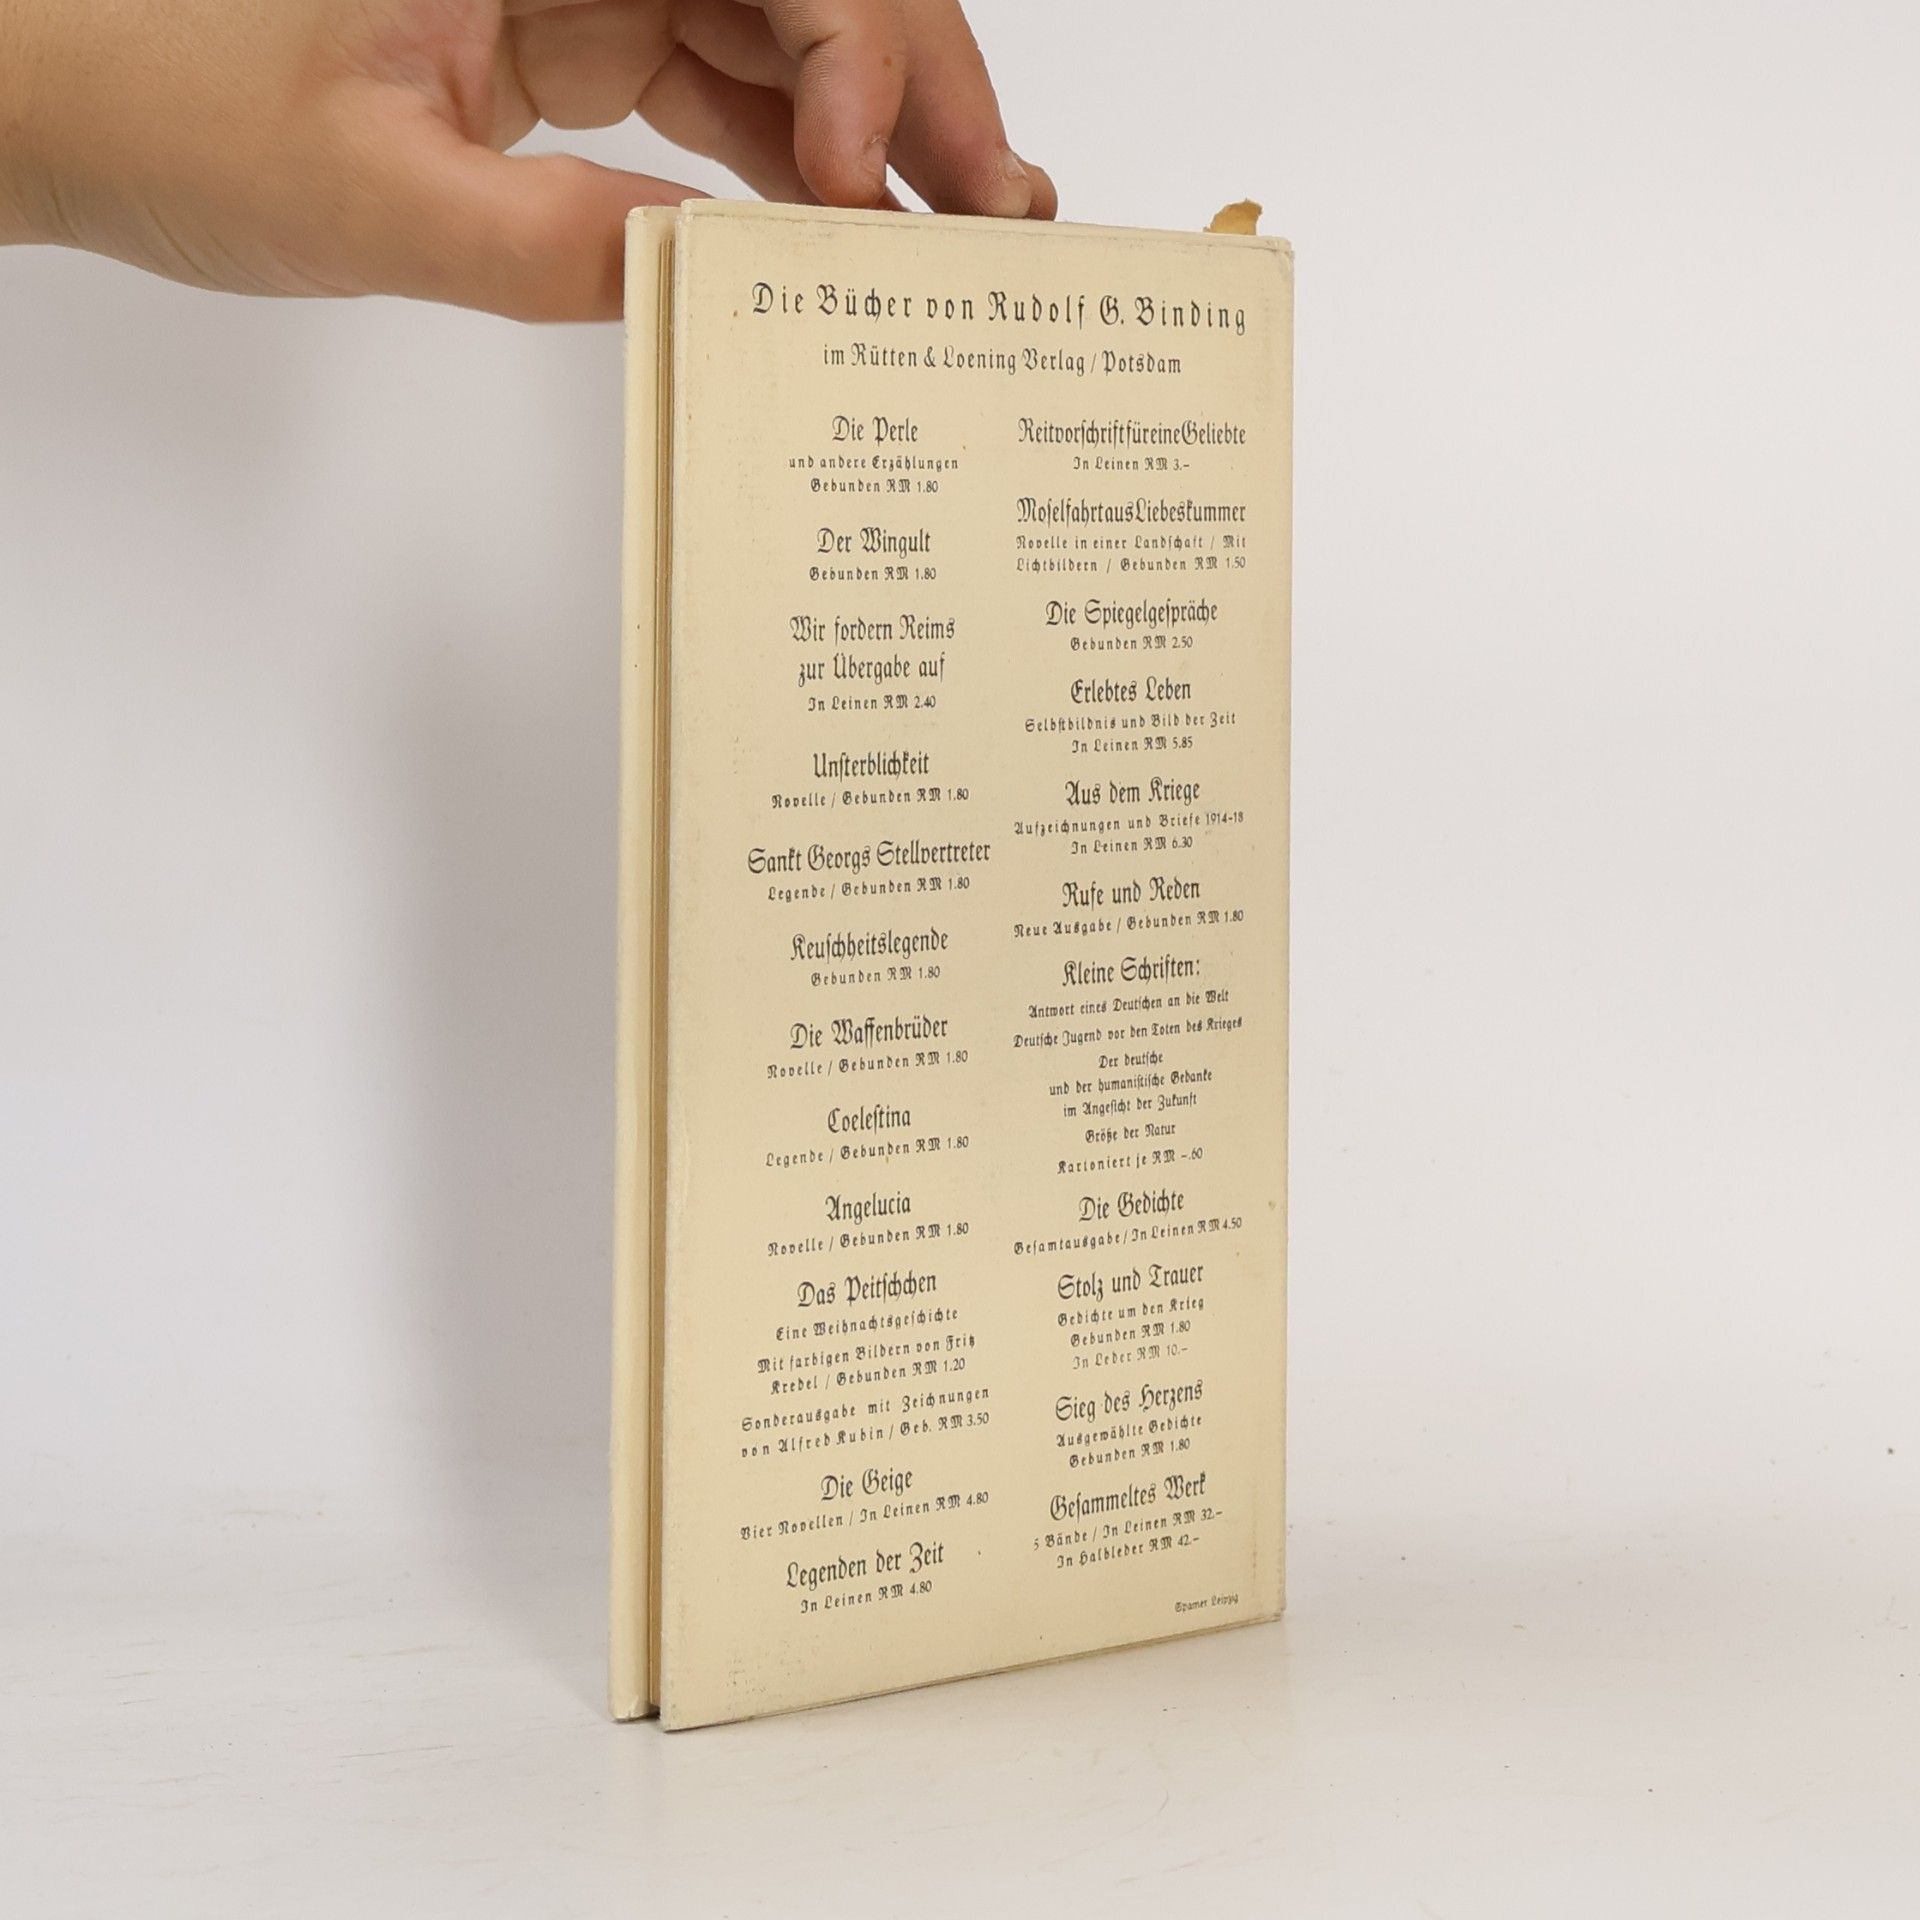 Die Bücher von Rudolf G. Binding
im Rütten & Loening Verlag / Potsdam
Die Perle
und andere Erzählungen
Gebunden RM 1.80
Der Wingult
Gebunden RM 1.80
Wir fordern Reims
zur Übergabe auf
In Leinen RM 2.40
Unſterblichkeit
Novelle / Gebunden RM 1.80
Sankt Georgs Stellvertreter
Legende / Gebunden RM 1.80
Keuſchheitslegende
Gebunden RM 1.80
Die Waffenbrüder
Novelle / Gebunden RM 1.80
Coeleſtina
Legende / Gebunden RM 1.80
Angelucia
Novelle / Gebunden RM 1.80
Das Peitſchchen
Eine Weihnachtsgeſchichte
Mit farbigen Bildern von Fritz
Kredel / Gebunden RM 1.20
Sonderausgabe mit Zeichnungen
von Alfred Kubin / Geb. RM 3.50
Die Geige
Vier Novellen / In Leinen RM 4.80
Legenden der Zeit
In Leinen RM 4.80
Reitvorſchrift für eine Geliebte
In Leinen RM 3.–
Moſelfahrt aus Liebeskummer
Novelle in einer Landſchaft / Mit
Lichtbildern / Gebunden RM 1.50
Die Spiegelgeſpräche
Gebunden RM 2.50
Erlebtes Leben
Selbſtbildnis und Bild der Zeit
In Leinen RM 5.85
Aus dem Kriege
Aufzeichnungen und Briefe 1914-18
In Leinen RM 6.30
Rufe und Reden
Neue Ausgabe / Gebunden RM 1.80
Kleine Schriften:
Antwort eines Deutſchen an die Welt
Deutſche Jugend vor den Toten des Krieges
Der deutſche
und der humaniſtiſche Gedanke
im Angeſicht der Zukunft
Größe der Natur
Kartoniert je RM –.60
Die Gedichte
Geſamtausgabe / In Leinen RM 4.50
Stolz und Trauer
Gedichte um den Krieg
Gebunden RM 1.80
In Leder RM 10.–
Sieg des Herzens
Ausgewählte Gedichte
Gebunden RM 1.80
Geſammeltes Werk
5 Bände / In Leinen RM 32.–
In Halbleder RM 42.–
Spamer Leipzig